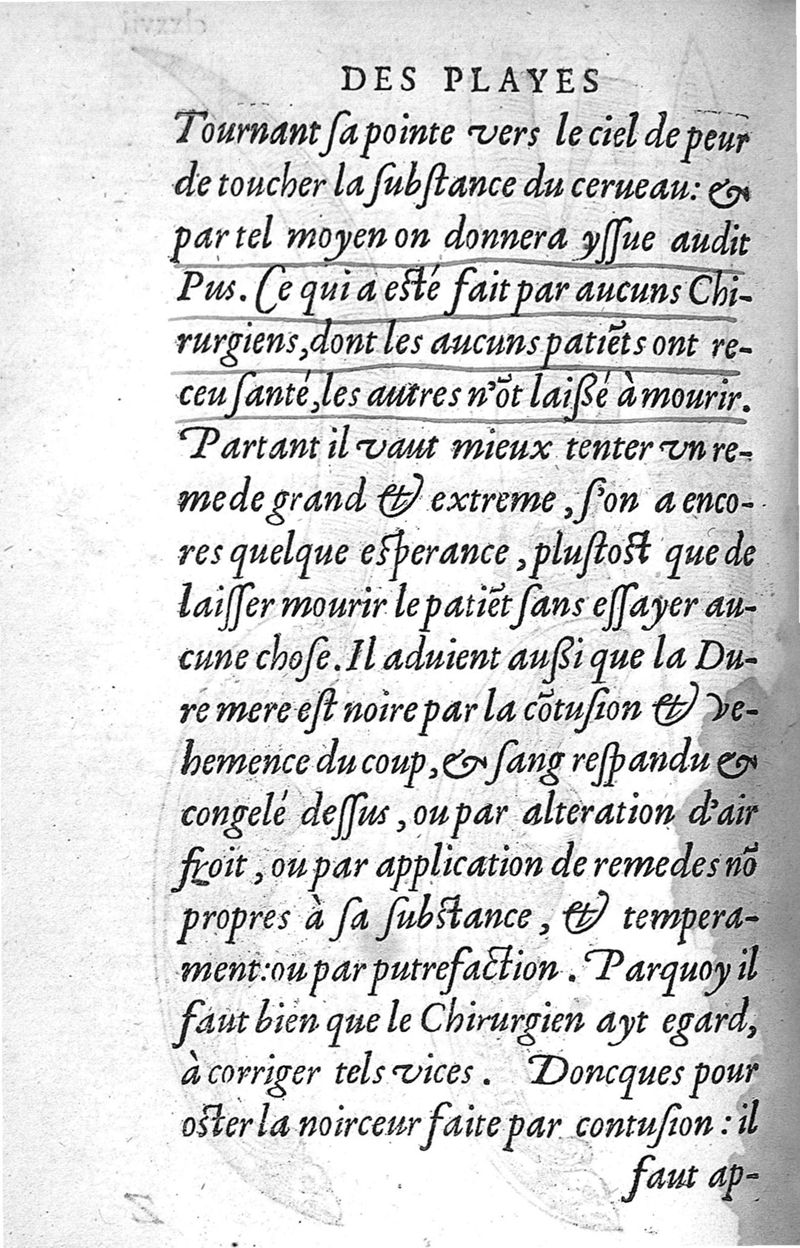 DES PLAYES
Tournant ſa pointe vers le ciel de peur
de toucher la ſubſtance du cerueau: &
par tel moyen on donnera yſſue audit
Pus. Ce qui a eſté fait par aucuns Chi-
rurgiens, dont les aucuns patiẽts ont re-
ceu ſanté, les autres n'õt laißé à mourir.
Partant il vaut mieux tenter vn re-
mede grand & extreme, ſ'on a enco-
res quelque eſperance, pluſtoſt que de
laiſſer mourir le patiẽt ſans eſſayer au-
cune choſe. Il aduient außi que la Du-
re mere eſt noire par la cõtuſion & ve-
hemence du coup, & ſang reſpandu &
congelé deſſus, ou par alteration d'air
froit, ou par application de remedes nõ
propres à ſa ſubſtance, & tempera-
ment: ou par putrefaction. Parquoy il
faut bien que le Chirurgien ayt egard,
à corriger tels vices. Doncques pour
oſter la noirceur faite par contuſion: il
faut ap-